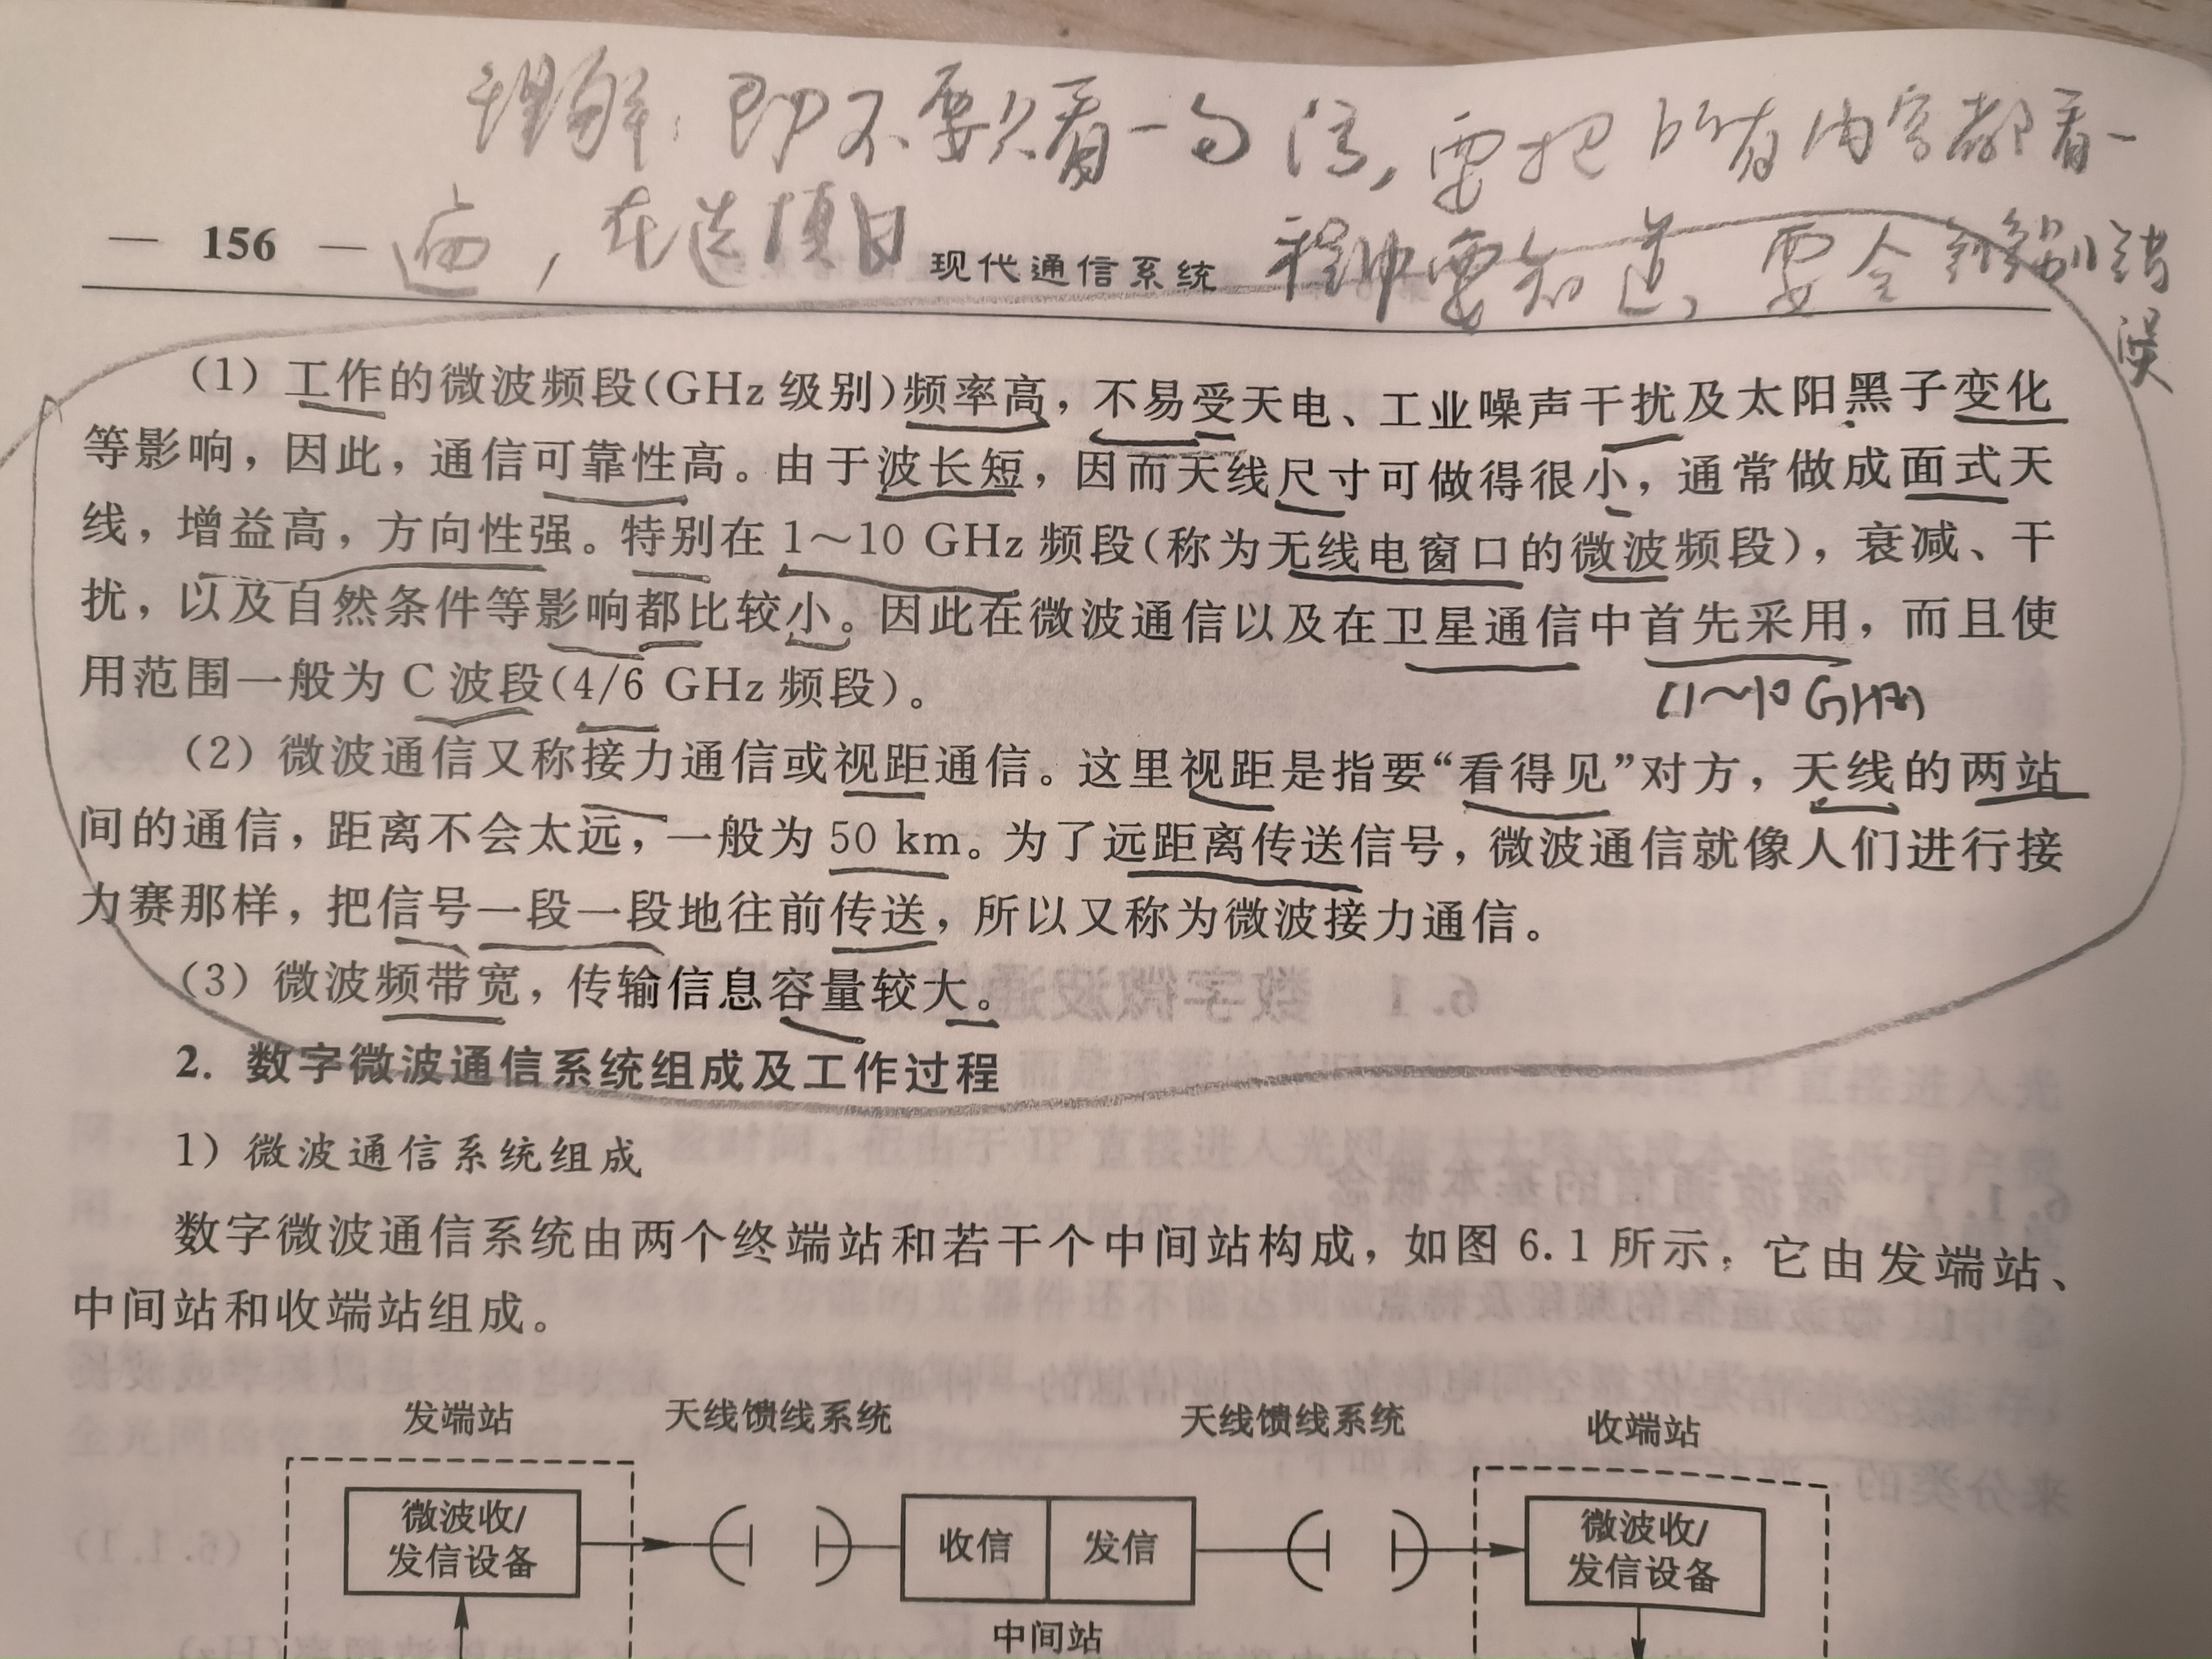 理解：即不要只看一句话，要把所有内容都看一
遍，在选项中
— 156 —
现代通信系统
要知道，要会到别错
误
（1）工作的微波频段(GHz级别)频率高，不易受天电、工业噪声干扰及太阳黑子变化
等影响，因此，通信可靠性高。由于波长短，因而天线尺寸可做得很小，通常做成面式天
线，增益高，方向性强。特别在1～10 GHz频段(称为无线电窗口的微波频段)，衰减、干
扰，以及自然条件等影响都比较小。因此在微波通信以及在卫星通信中首先采用，而且使
用范围一般为C波段(4/6 GHz频段)。
(1～10GHz)
（2）微波通信又称接力通信或视距通信。这里视距是指要“看得见”对方，天线的两站
间的通信，距离不会太远，一般为50 km。为了远距离传送信号，微波通信就像人们进行接
力赛那样，把信号一段一段地往前传送，所以又称为微波接力通信。
（3）微波频带宽，传输信息容量较大。
2. 数字微波通信系统组成及工作过程
1）微波通信系统组成
数字微波通信系统由两个终端站和若干个中间站构成，如图6.1所示，它由发端站、
中间站和收端站组成。
发端站
天线馈线系统
天线馈线系统
收端站
微波收/
发信设备
收信
发信
微波收/
发信设备
中间站